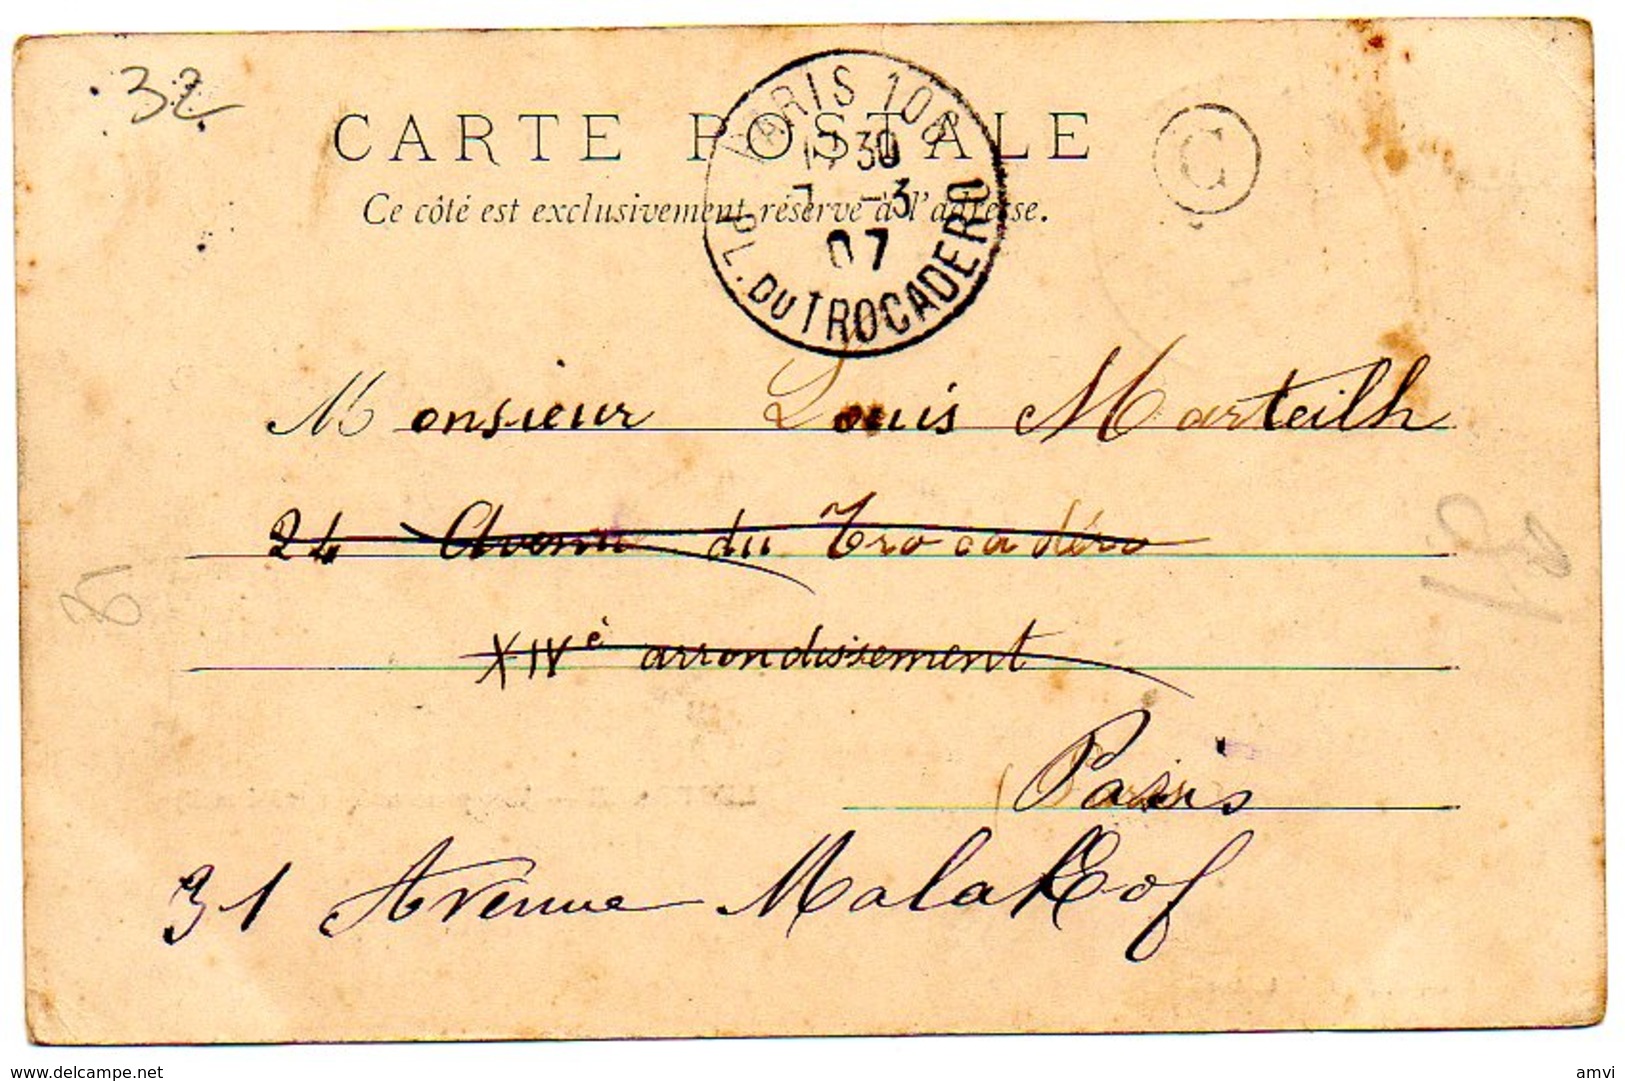 32
CARTE POSTALE
Ce côté est exclusivement réservé à l'adresse.
PARIS 106
17 30
7 -3
07
PL. DU TROCADERO
C
Monsieur Louis Marteilh
24 Avenue du Trocadéro
XIVè arrondissement
Paris
31 Avenue Malakof
www.delcampe.net
amvi